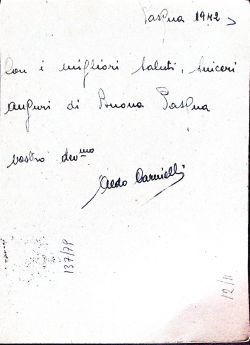 Pasqua 1942
Con i migliori saluti, sinceri
auguri di Buona Pasqua
vostro dev.mo
Aldo Carnielli
137/79
12/11